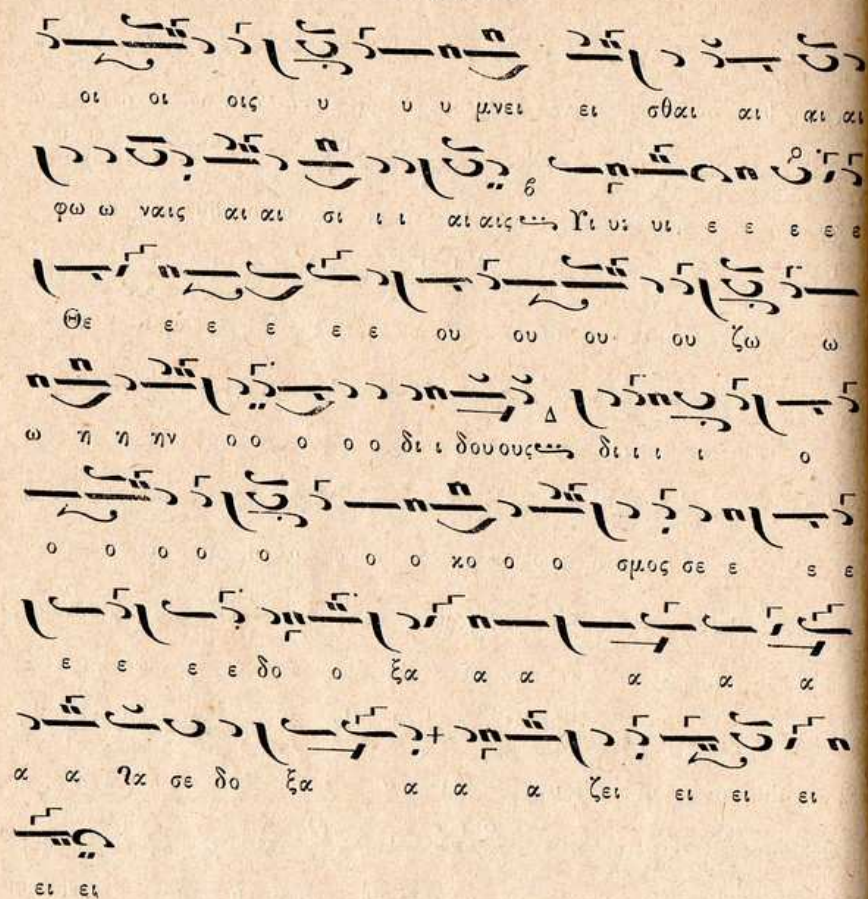 οι οι οις υ υ υ μνει ει σθαι αι αι αι
φω ω ναις αι αι σι ι ι αι αις Υι υι υι ε ε ε ε ε
Θε ε ε ε ε ε ου ου ου ου ζω ω
ω η η ην ο ο ο ο ο δι ι δου ους Δ δι ι ι ι ο
ο ο ο ο ο ο ο κο ο ο σμος σε ε ε ε
ε ε ε ε δο ο ξα α α α α α
α α σε δο ξα α α α ζει ει ει ει
ει ει